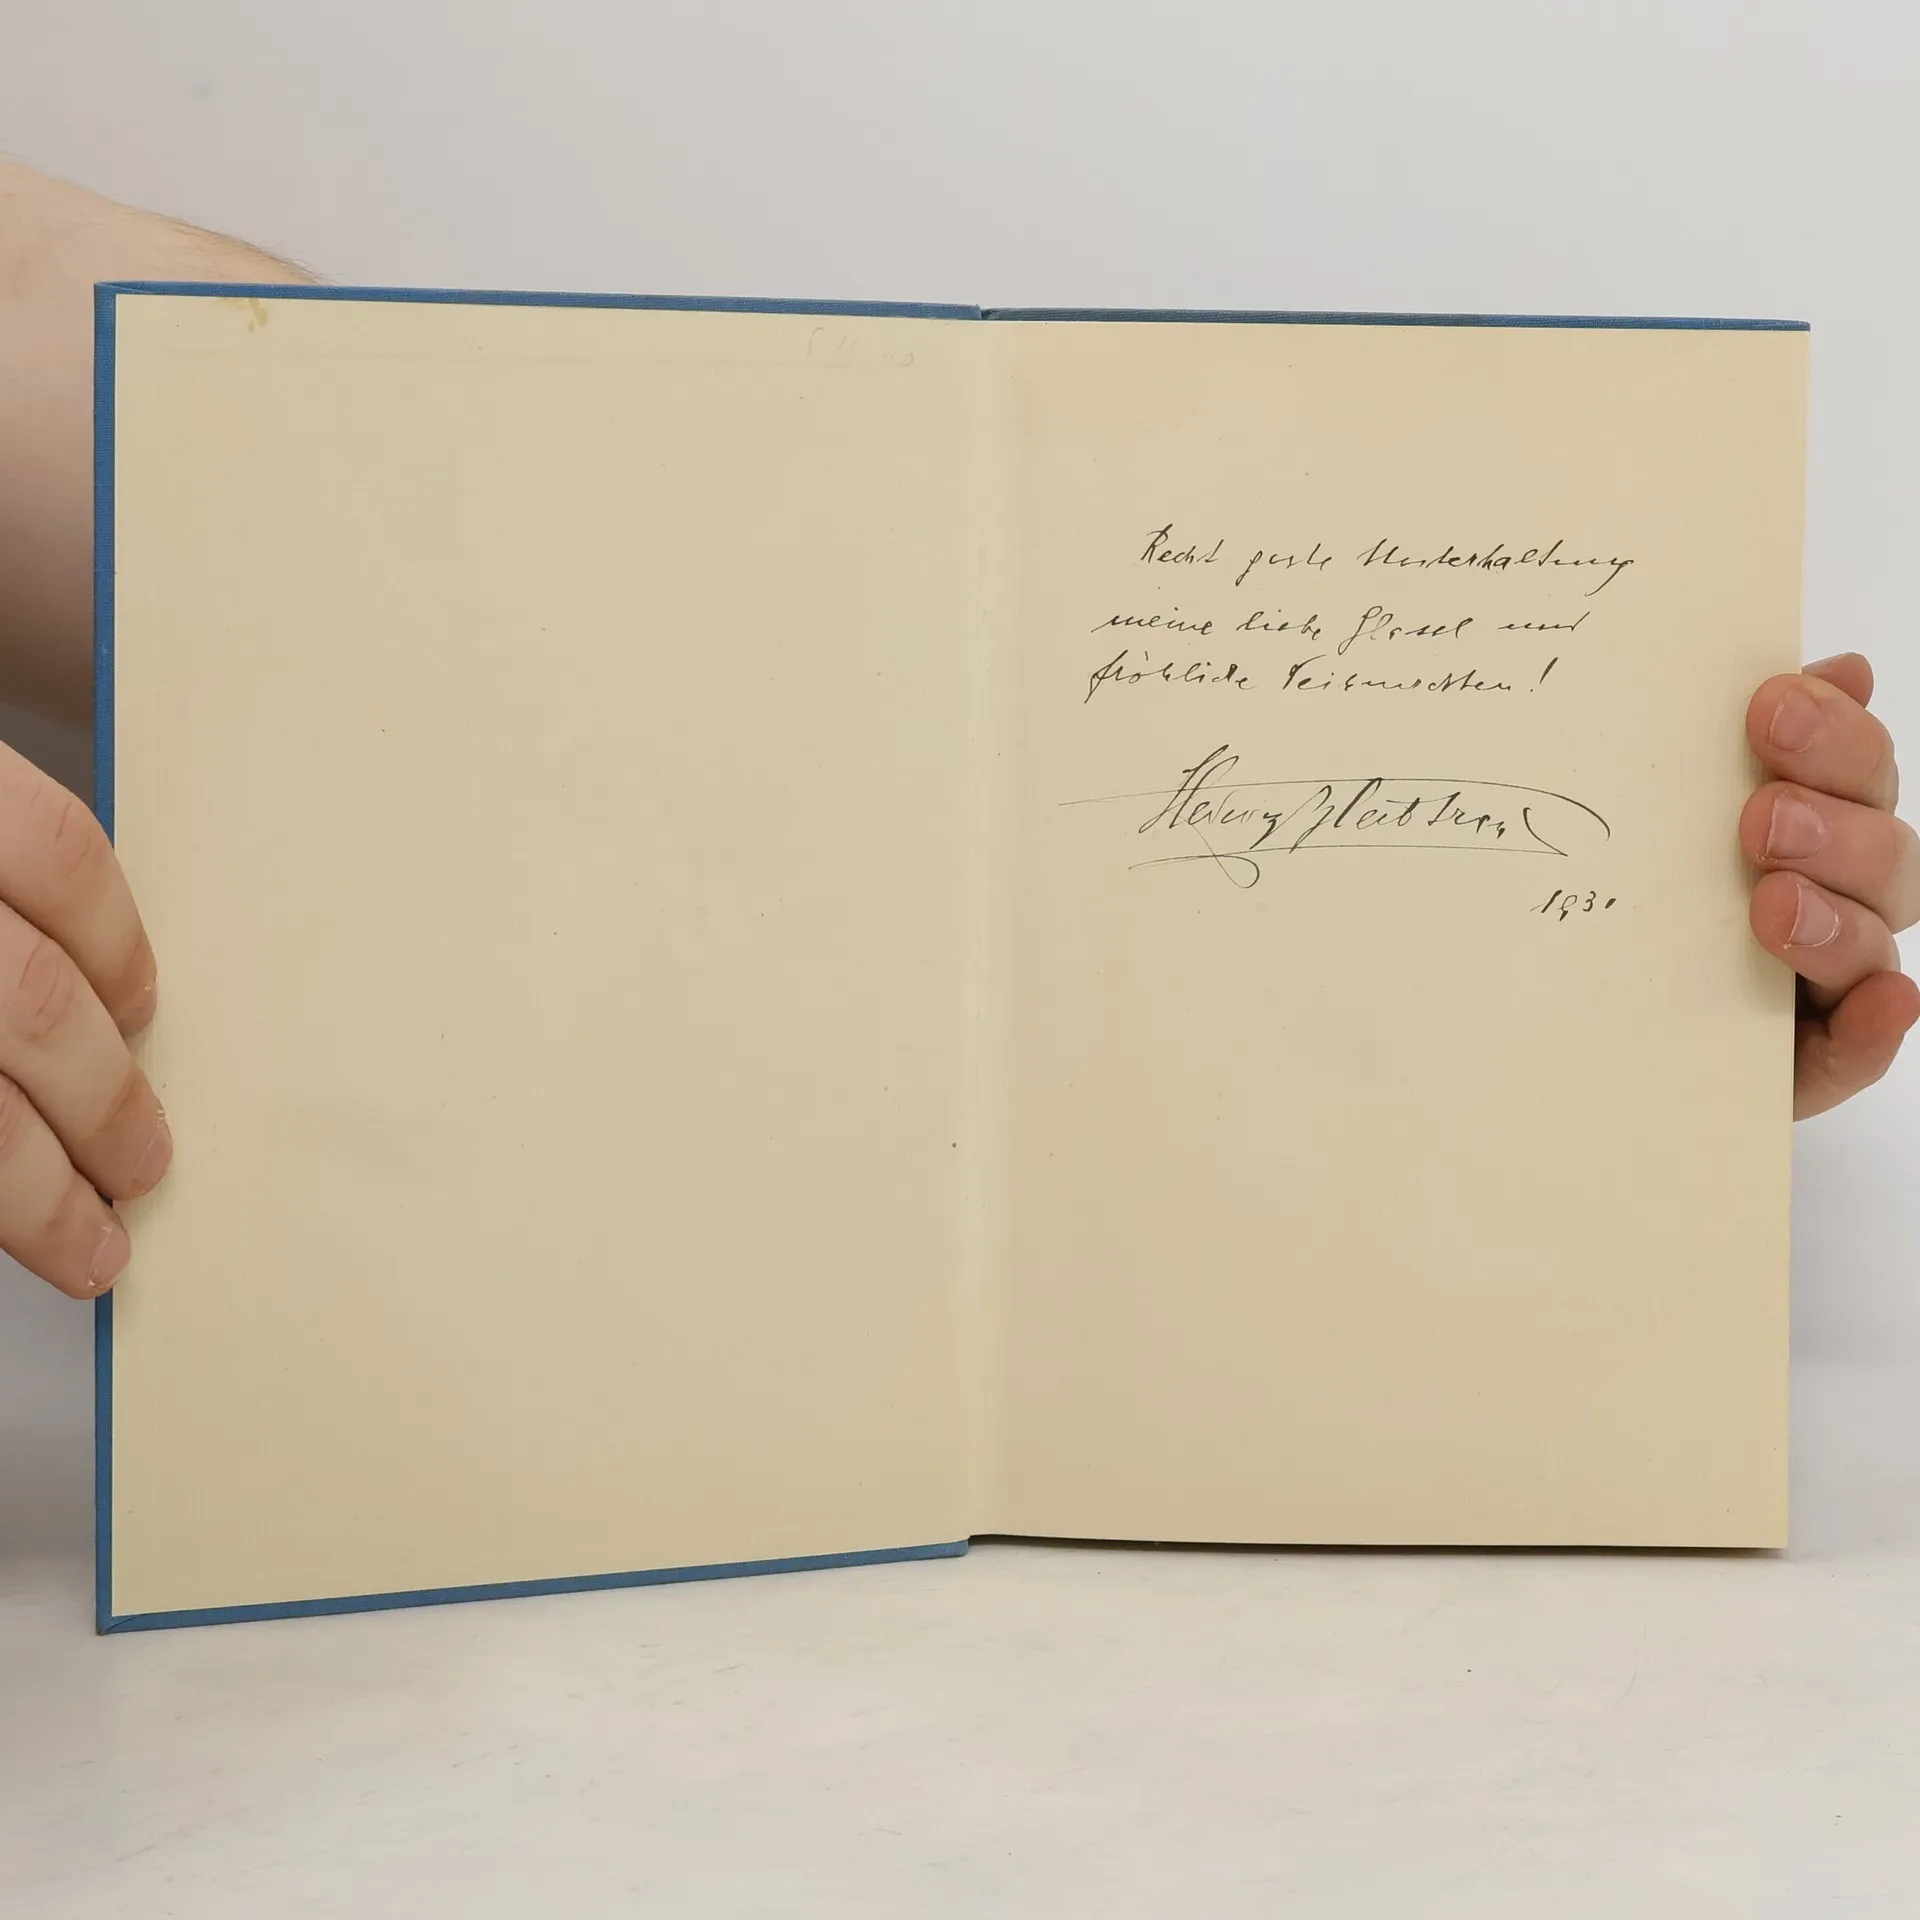 Recht gute Unterhaltung
meine liebe und
fröhliche Weihnachten!
1930